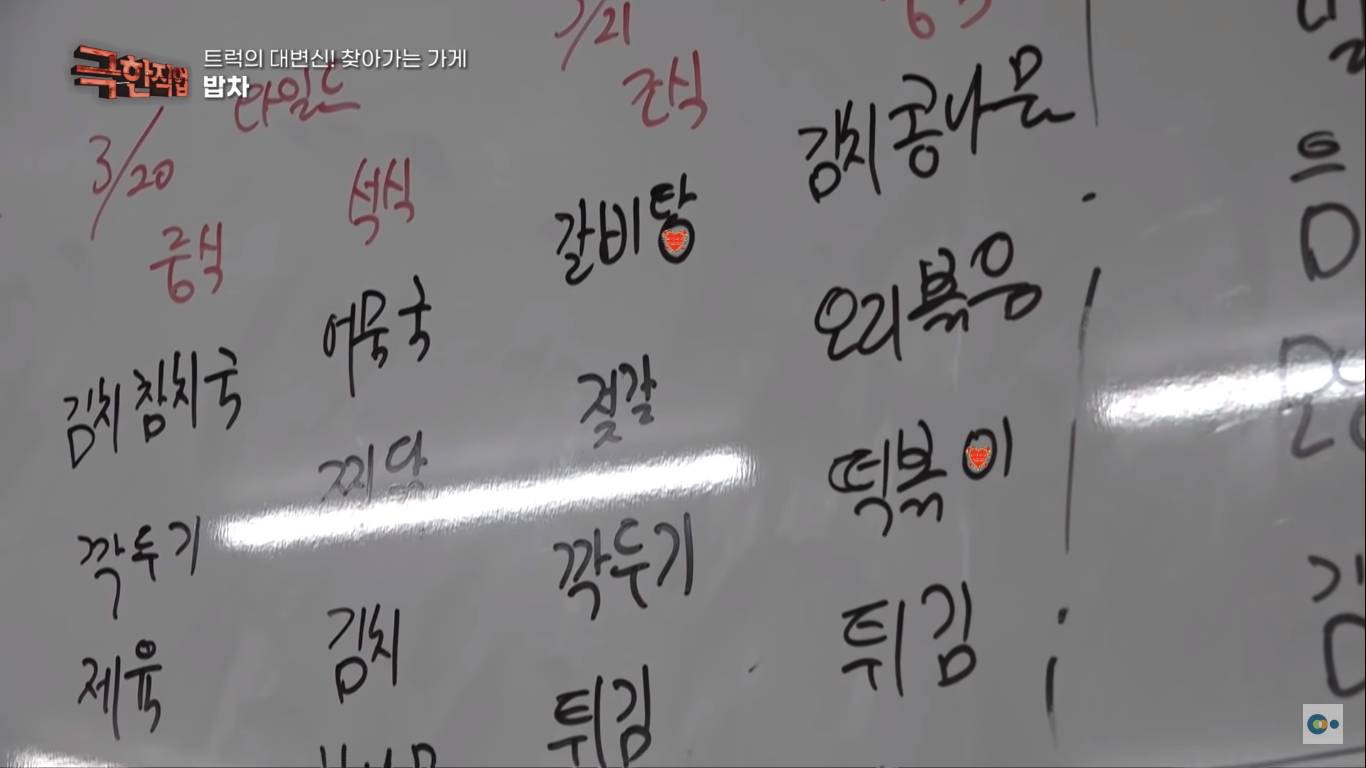 극한직업
트럭의 대변신! 찾아가는 가게
밥차
타일드
3/20
중식
김치참치국
깍두기
제육
석식
어묵국
찌닭
김치
3/21
조식
갈비탕
젓갈
깍두기
튀김
중식
김치콩나물
오리볶음
떡볶이
튀김